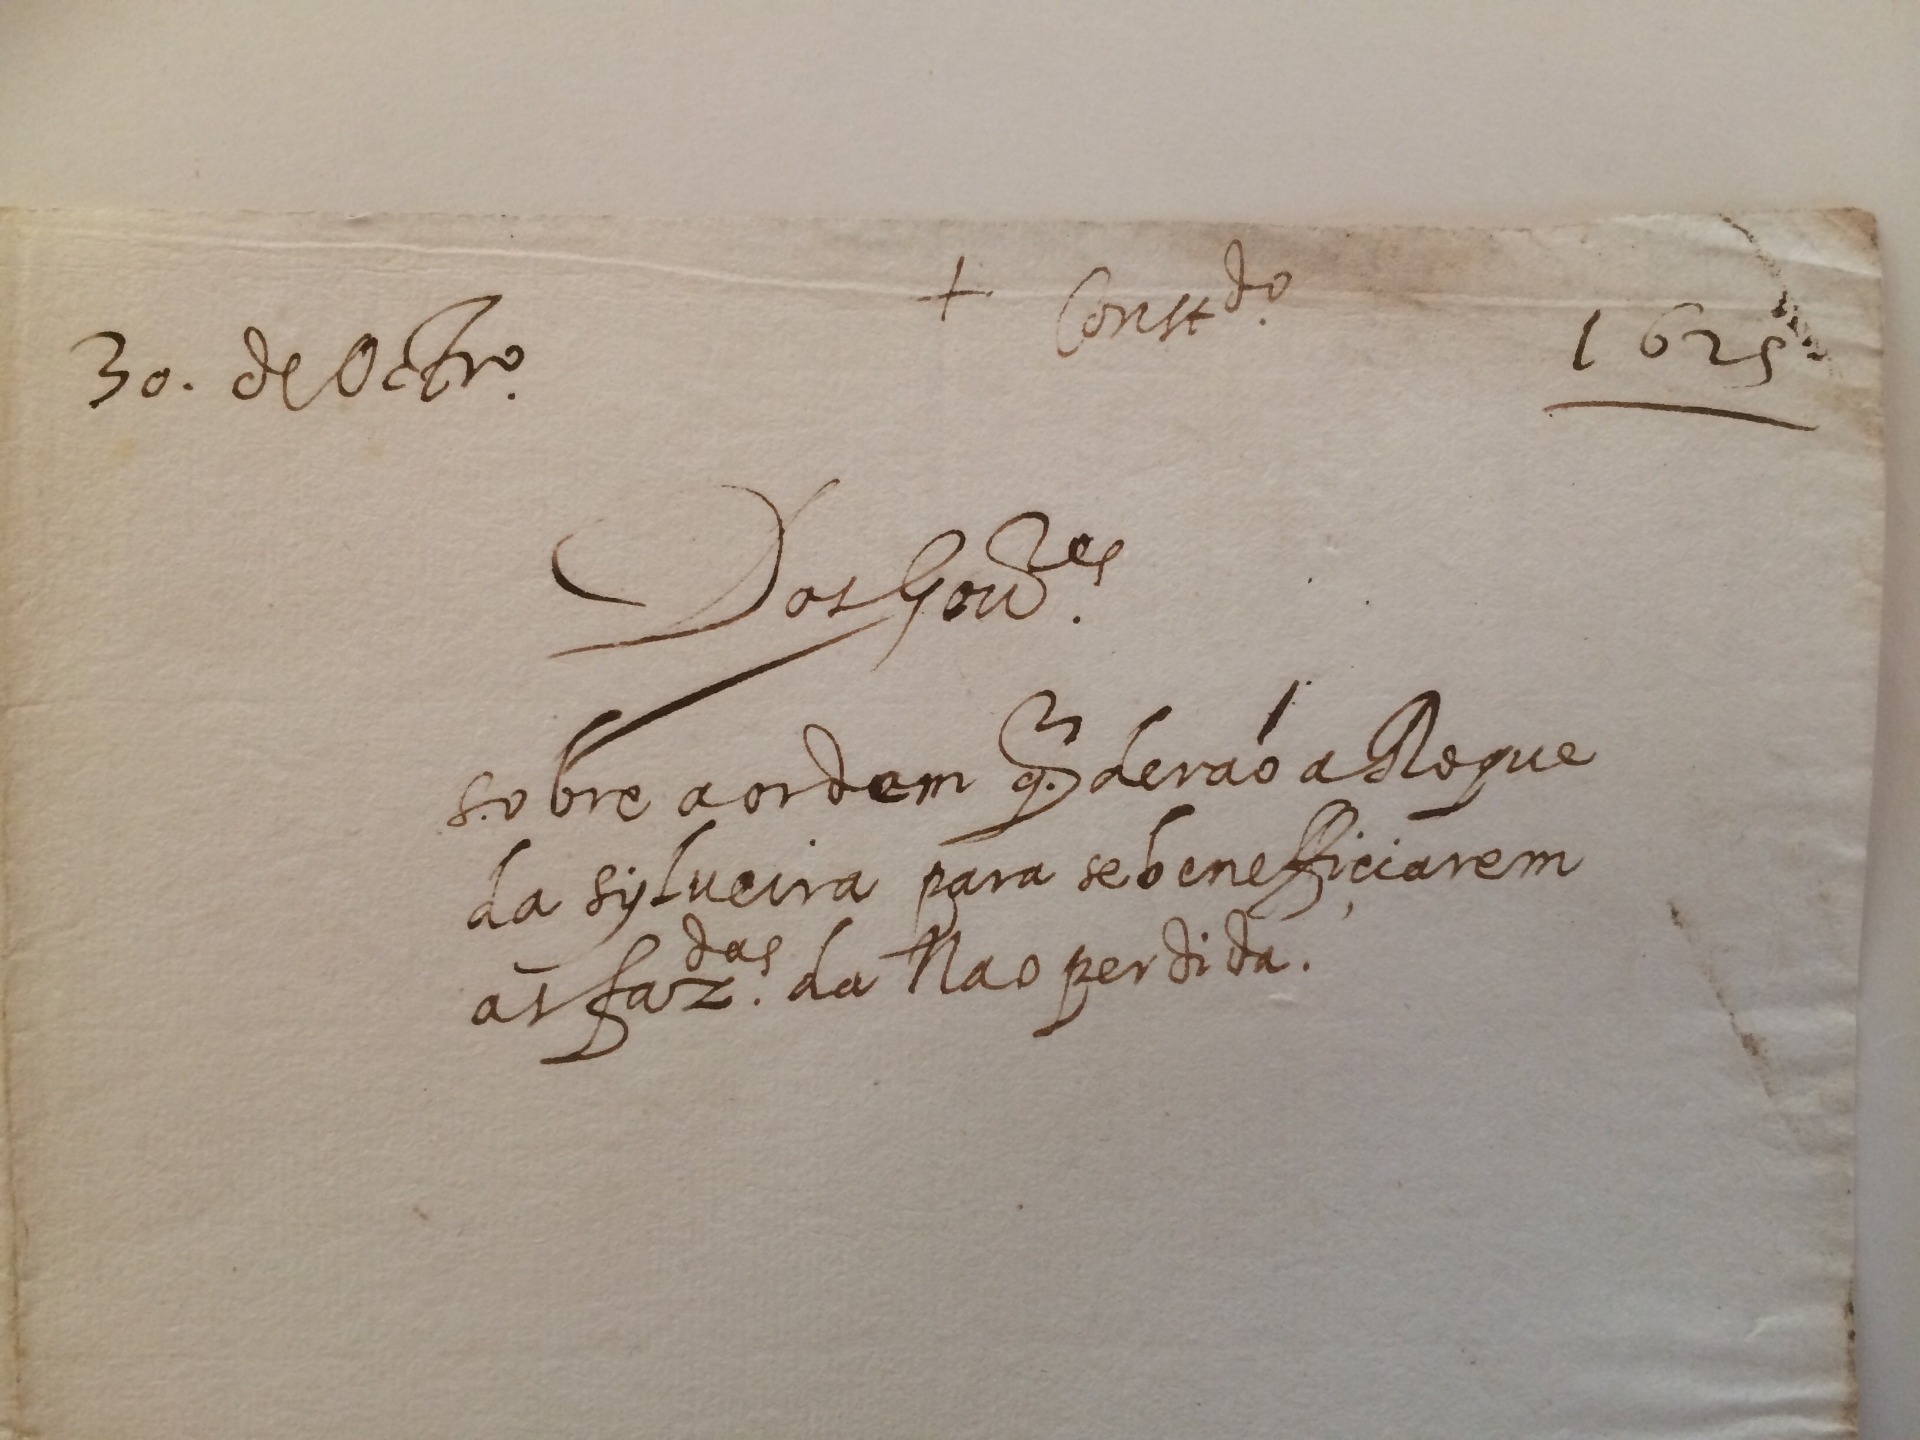 + Constdo.
30. de Octro. 1625
Dos Gou.es
sobre a ordem q. deraó a Roque
da sylueira para se beneffiçiarem
as fazdas. da Nao perdida.